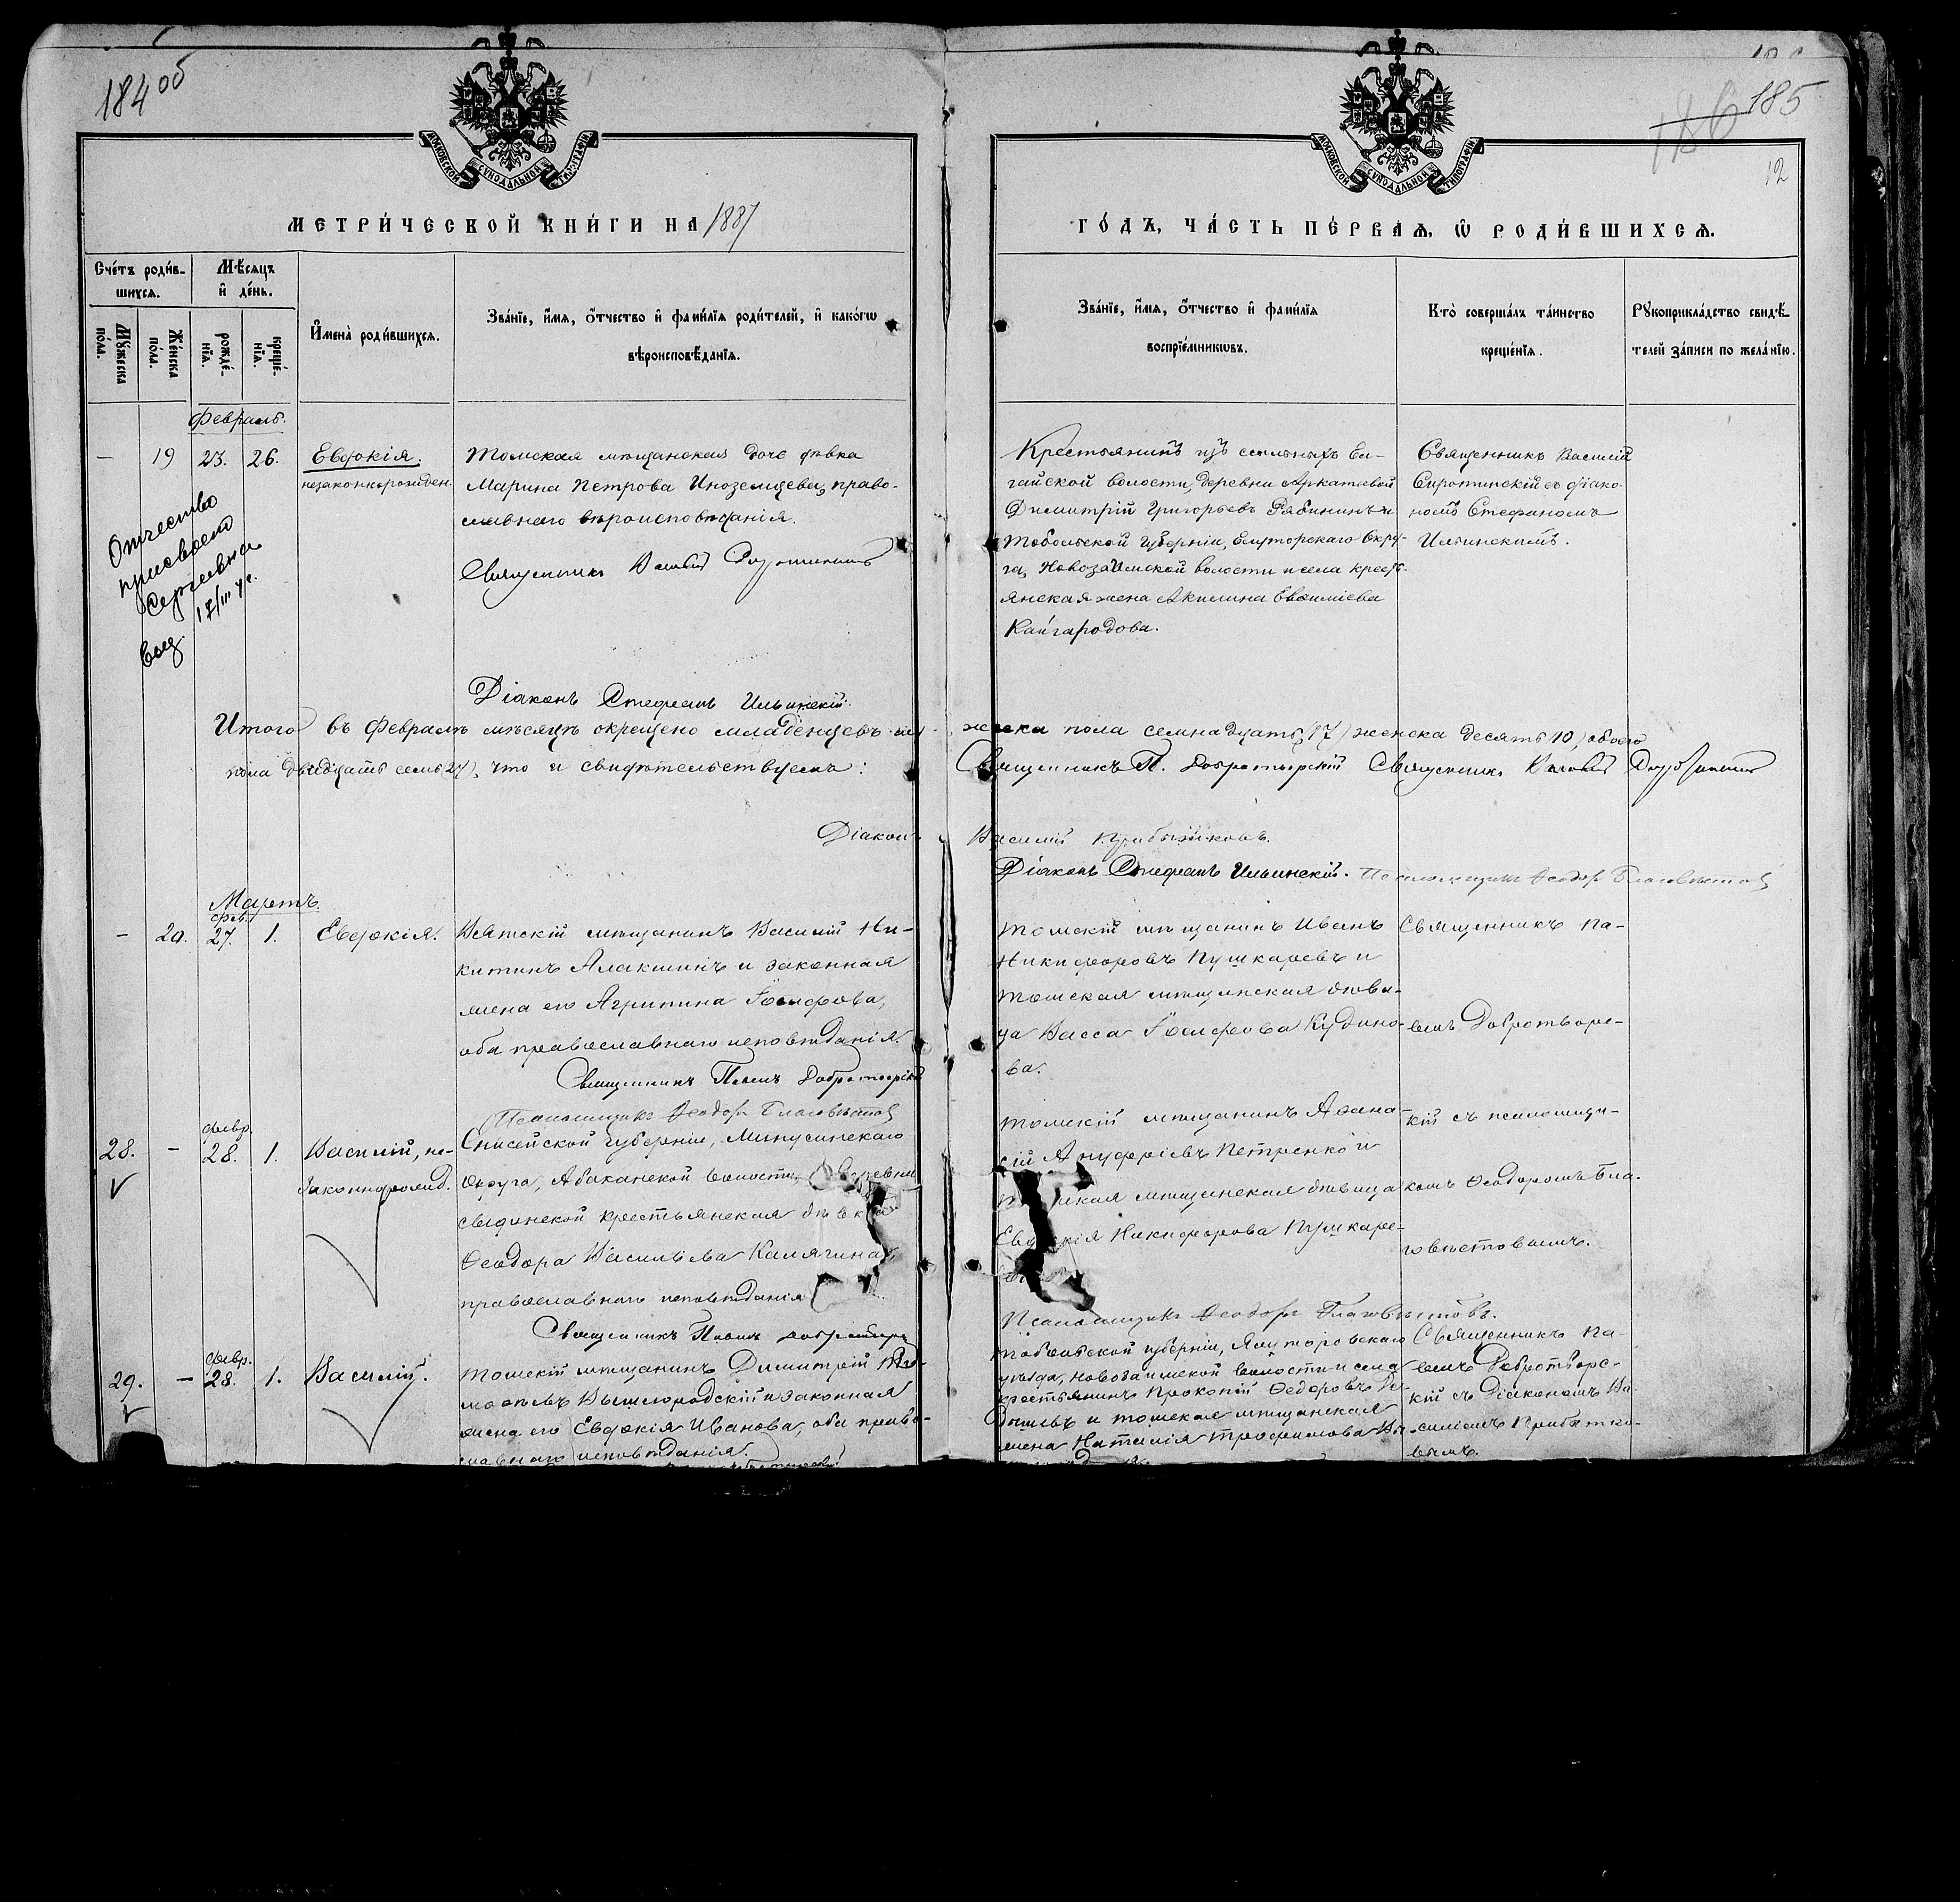 184 об
185
186
12
МОСКОВСКОЙ СѴНОДАЛЬНОЙ ТИПОГРАФІИ
МОСКОВСКОЙ СѴНОДАЛЬНОЙ ТИПОГРАФІИ
МЕТРИ́ЧЕСКОЙ КНИ́ГИ НА 1887
ГО́ДЪ, ЧА́СТЬ ПЕ́РВАѦ, Ѡ҆ РОДИ́ВШИХСѦ.
Сче́тъ роди́в-
шихсѧ.
Мѣ́сѧцъ
и҆ де́нь.
Мꙋ́жеска по́ла.
Же́нска по́ла.
рожде́-нїѧ.
креще́-нїѧ.
И҆мена̀ роди́вшихсѧ.
Зва́нїе, и҆́мѧ, ѻ҆́тчество и҆ фами́лїѧ роди́телей, и҆ како́гѡ
вѣроисповѣ́данїѧ.
Зва́нїе, и҆́мѧ, ѻ҆́тчество и҆ фами́лїѧ
воспрїе́мникѡвъ.
Кто̀ соверша́лъ та́инство
креще́нїѧ.
Рꙋкоприкла́дство свидѣ́-
телей за́писи по жела́нїю.
Февраль.
— 19 23. 26.
Евдокія.
незаконнорожден.
Томская мѣщанская дочь дѣвка
Марина Петрова Иноземцева, право-
славнаго вѣроисповѣданія.
Священникъ Василій Сиротинскій
Отчество
присвоено
Сергеевна
17/III
Крестьянинъ изъ ссыльныхъ Ел-
гайской волости, деревни Аркатьевой
Димитрій Григорьевъ Рябининъ и
Тобольской губерніи, Ялуторскаго Окру-
га, Новозаимской волости и села кресть-
янская жена Акилина Евѳиміева
Кайгародова.
Священникъ Василій
Сиротинскій съ діако-
номъ Стефаномъ
Ильинскимъ.
Діаконъ Стефанъ Ильинскій
Итого въ Февралѣ мѣсяцѣ окрещено младенцевъ му-
жеска пола семнадцать (17) женска десять (10) обоего
пола двадцать семь (27), что и свидѣтельствуемъ:
Священникъ П. Добротворскій Священникъ Василій Сиротинскій
Діаконъ Василій Прибытковъ.
Діаконъ Стефанъ Ильинскій. Псаломщикъ Ѳеодоръ Благовѣстовъ
Мартъ.
фев.
— 20. 27. 1.
Евдокія.
Вятскій мѣщанинъ Василій Ни-
китинъ Алакшинъ и законная
жена его Агрипина Іосифова,
оба православнаго исповѣданія.
Священникъ Павелъ Добротворскій
Псаломщикъ Ѳеодоръ Благовѣстовъ
Томскій мѣщанинъ Иванъ
Никифоровъ Пушкаревъ и
Томская мѣщанская дѣви-
ца Васса Іосифова Кудино-
ва.
Священникъ Па-
велъ Добротворс-
кій съ псаломщи-
комъ Ѳеодоромъ Бла-
говѣстовымъ.
февр.
28. — 28. 1.
Василій, не-
законнорожд.
Енисейской губерніи, Минусинскаго
Округа, Абаканской волости, деревни
крестьянская дѣвка
Ѳеодора Васильева Калягина
православнаго исповѣданія
Священникъ Павелъ Добротворскій
Томскій мѣщанинъ Аѳана-
сій Ануфріевъ Петренко и
Томская мѣщанская дѣвица
Евдокія Никифорова Пушкаре-
ва
Псаломщикъ Ѳеодоръ Благовѣстовъ.
февр.
29. — 28. 1.
Василій.
Томскій мѣщанинъ Димитрій
Вышегородскій и законная
жена его Евдокія Иванова, оба право-
славнаго исповѣданія.
Тобольской губерніи, Ялуторовскаго
уѣзда, Новозаимской волости и села
крестьянинъ Прокопій Ѳедоровъ
и томская мѣщанская
жена Наталія Трофимова Вы-
Священникъ Па-
велъ Добротворс-
кій съ Діакономъ Ва-
силіемъ Прибытко-
вымъ.